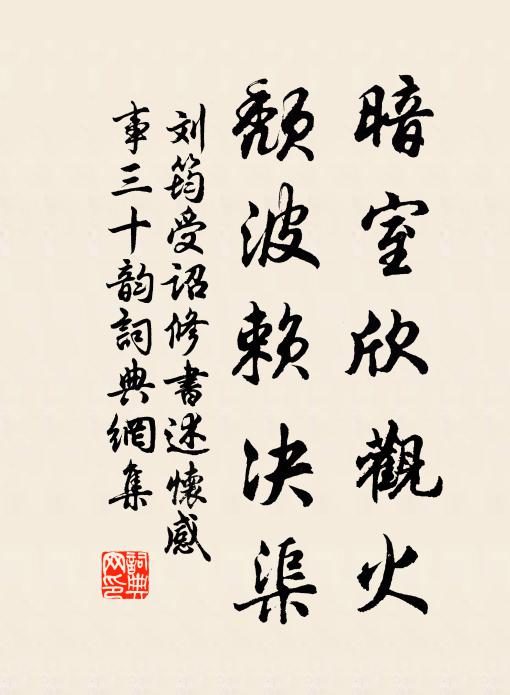 暗室欣觀火
颓波赖决渠
刘筠受诏修書述懷感
事三十韵詞典網集
詞典网印